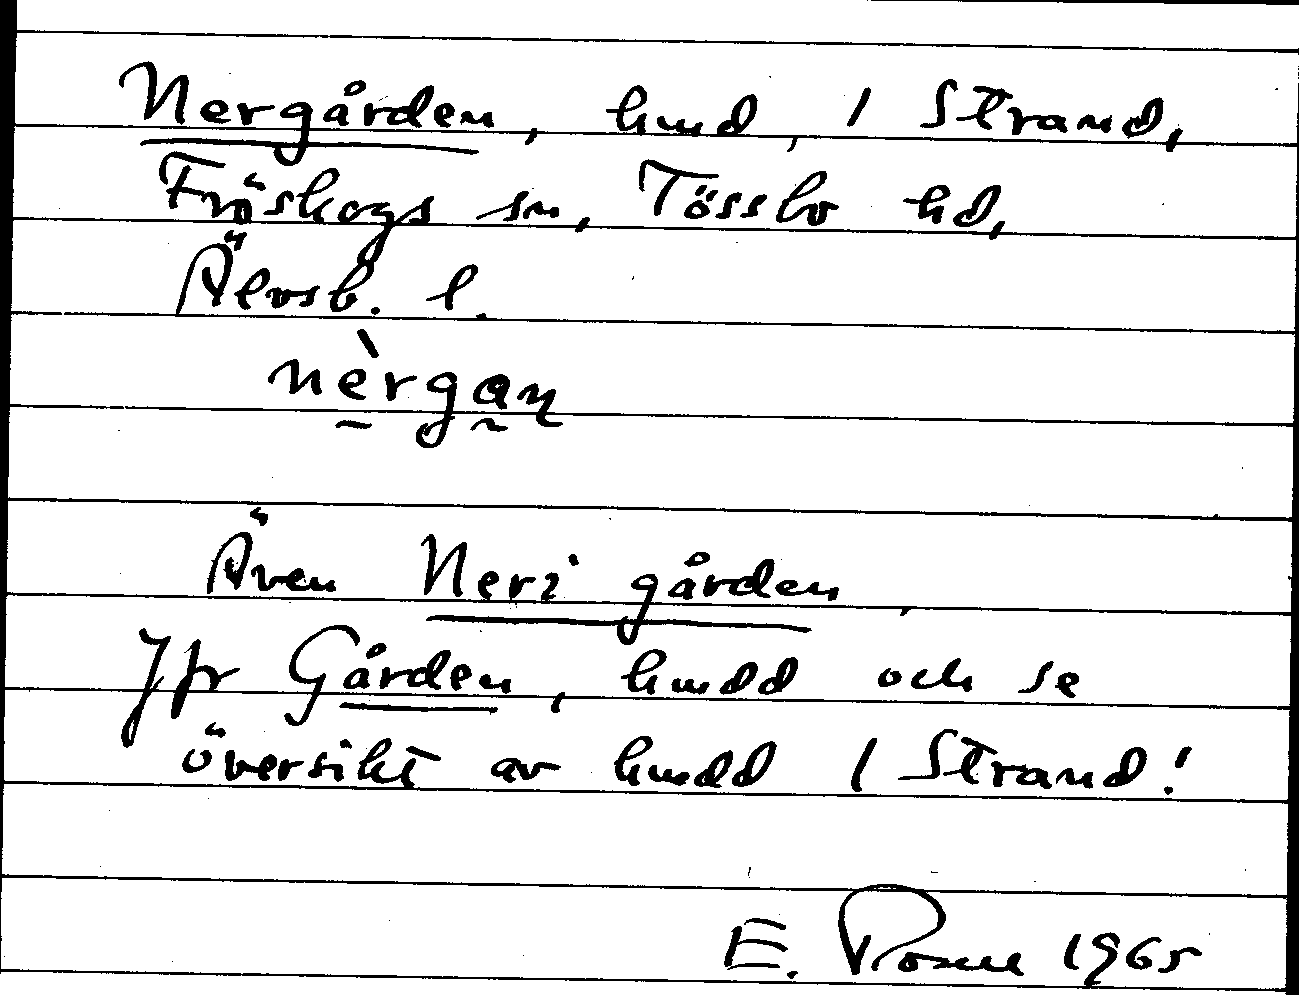 Nergården, hmd, 1 Strand,
Fröskogs sn, Tössbo hd,
Älvsb. l.
nèrgaɳ
Även Neri gården
Jfr Gården, hmdd och se
översikt av hmdd 1 Strand!
E. Rosell 1965